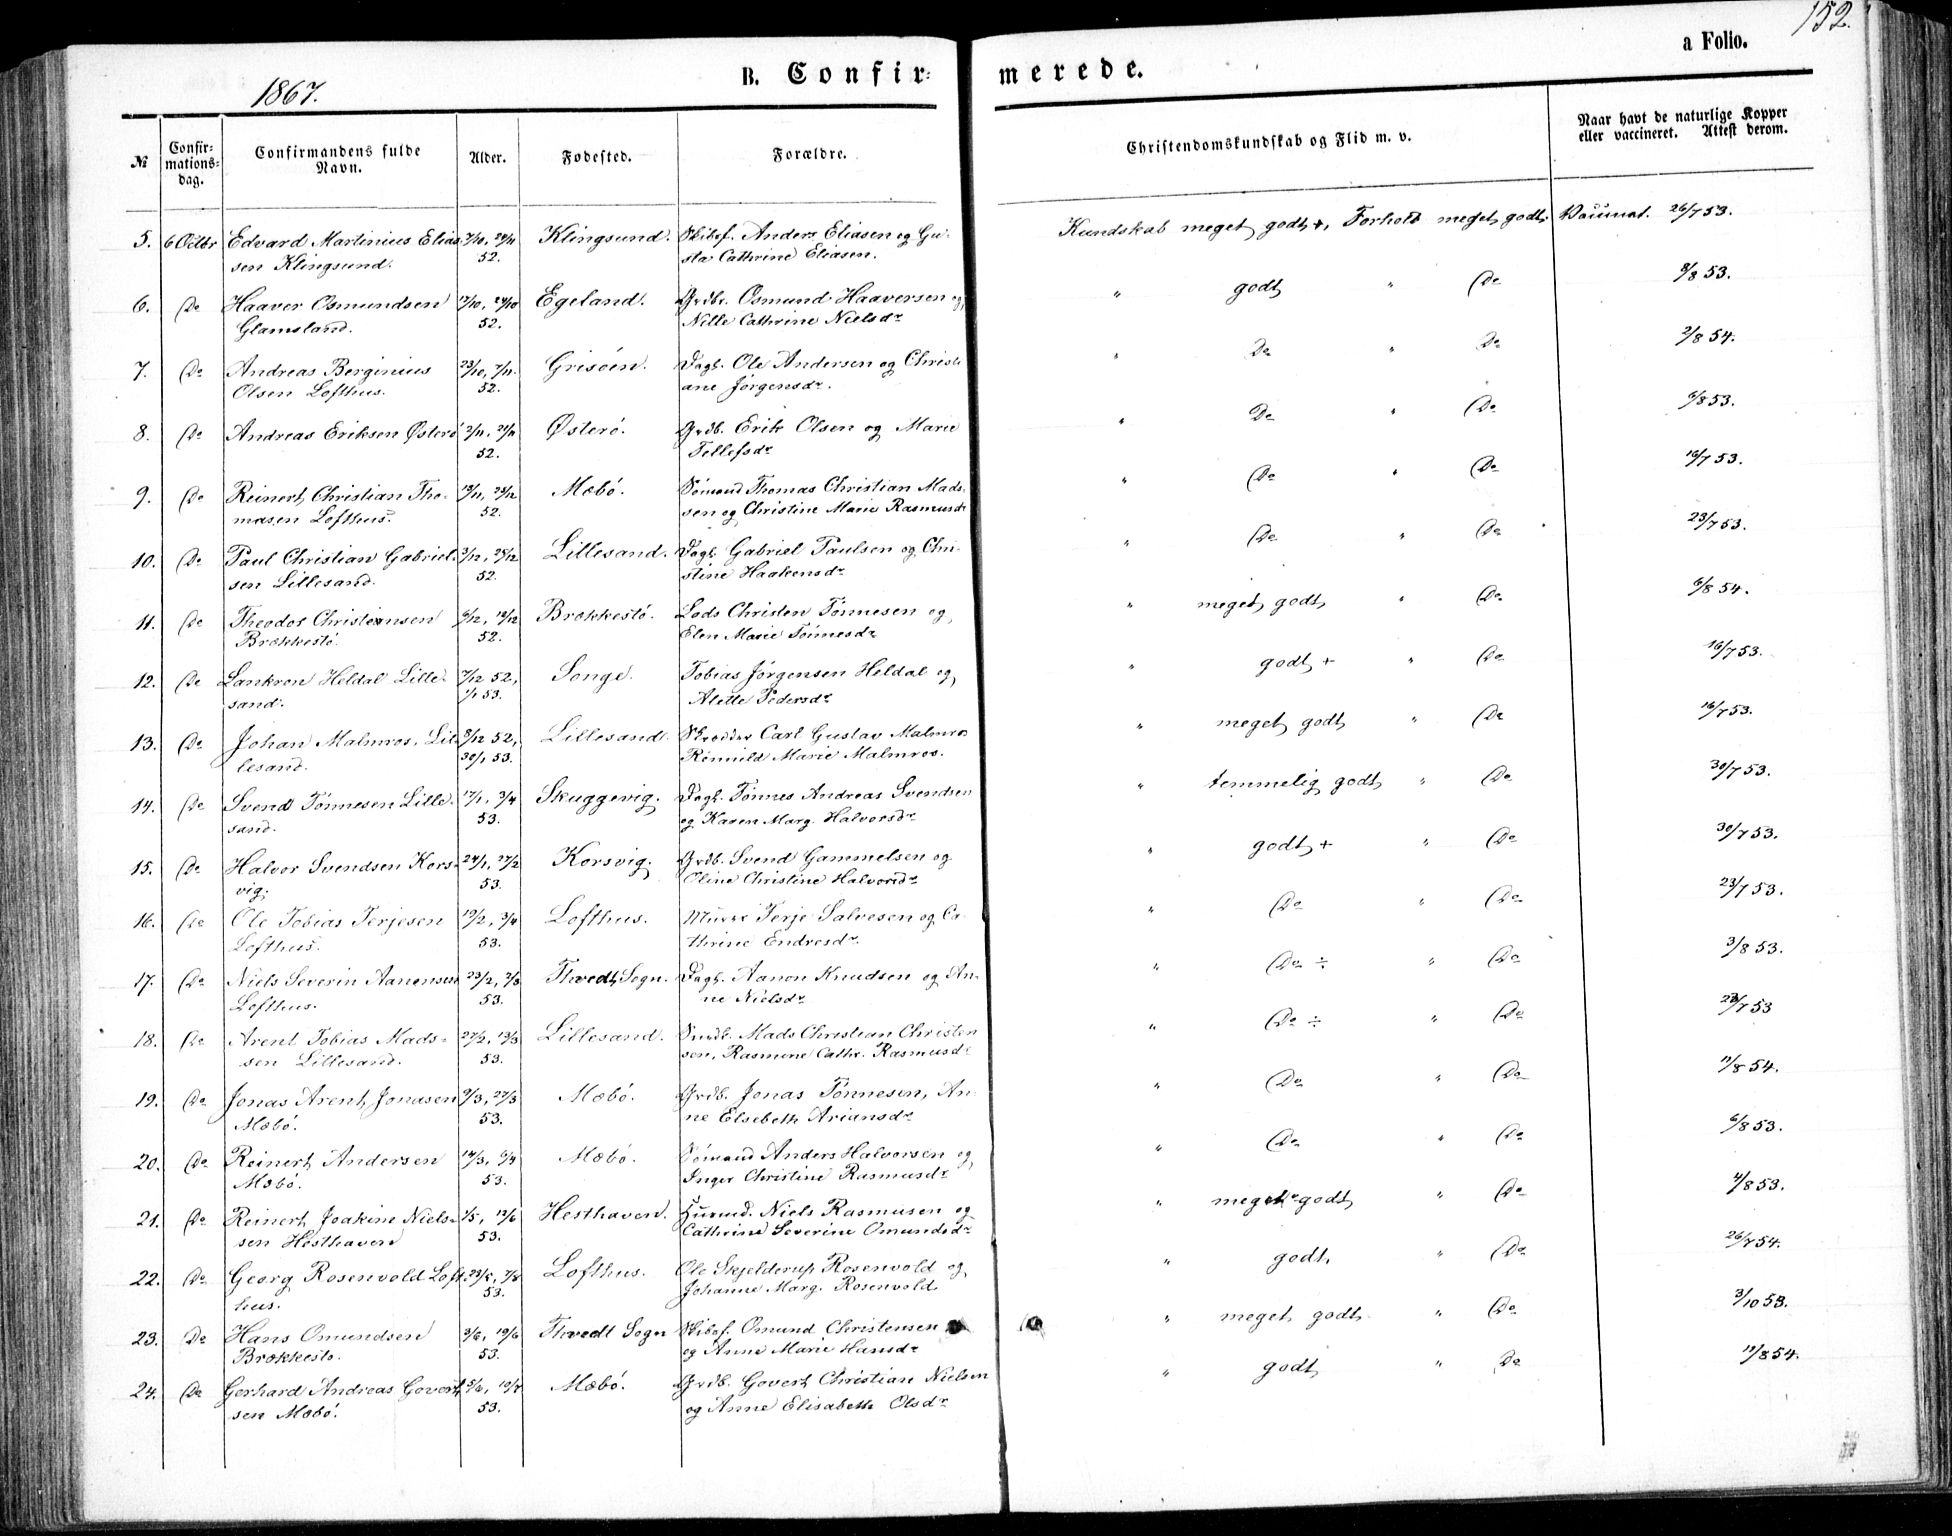 152.
a Folio.
1867.
B. Confir-
merede.
№
Confir-
mations-
dag.
Confirmandens fulde
Navn.
Alder.
Fødested.
Forældre.
Christendomskundskab og Flid m. v.
Naar havt de naturlige Kopper
eller vaccineret. Attest derom.
5. 6 Octbr Edvard Martinius Elias- 7/10, 29/11 Klingsund. Skibsf. Anders Eliasen og Gu- Kundskab meget godt +, Forhold meget godt. Vaccinat. 26/7 53.
sen Klingsund. 52. sta Cathrine Eliasen.
6. Do Haaver Osmundsen 17/10, 24/10 Egeland. Grdbr. Osmund Haaversen og " godt " Do 8/8 53.
Glamsland. 52. Nille Cathrine Nielsdr
7. Do Andreas Berginius 23/10, 7/11 Grisøen. Dagl. Ole Andersen og Christi- " Do " Do 2/8 54.
Olsen Lofthus. 52. ane Jørgensdr.
8. Do Andreas Eriksen Østerø 2/11, 21/11 Østerø. Grdb. Erik Olsen og Marie " Do " Do 6/8 53.
52. Tellefsdr
9. Do Reinert Christian Tho- 13/11, 29/12 Mæbø. Sømand Thomas Christian Mads- " Do " Do 16/7 53.
masen Lofthus. 52. sen og Christine Marie Rasmusdr
10. Do Paul Christian Gabriel- 3/12, 28/12 Lillesand. Dagl. Gabriel Paulsen og Chri- " Do " Do 23/7 53.
sen Lillesand. 52. stine Haakensdr
11. Do Theodor Christiansen 6/12, 12/12 Brækkestø. Lods Christen Tønnesen og " meget godt " Do 6/8 54.
Brækkestø. 52. Elen Marie Tønnesdr
12. Do Lankron Heldal Lille- 7/12 52, Songe. Tobias Jørgensen Heldal og " godt + " Do 16/7 53.
sand. 1/1 53. Alette Pedersdr
13. Do Johan Malmros, Lil- 8/12 52, Lillesand. Skrædder Carl Gustav Malmros " meget godt " Do 16/7 53.
lesand. 30/1 53. Rønnild Marie Malmros.
14. Do Svend Tønnesen Lille- 17/1, 3/4 Skuggevig. Dagl. Tønnes Andreas Svendsen " temmelig godt " Do 30/7 53.
sand. 53. og Karen Marg. Halvorsdr
15. Do Halvor Svendsen Kors- 24/1, 27/2 Korsvig. Grdb. Svend Gammelsen og " godt + " Do 30/7 53.
vig. 53. Oline Christine Halvorsdr
16. Do Ole Tobias Terjesen 19/2, 3/4 Lofthus. Murer Terje Salvesen og Ca- " Do " Do 23/7 53.
Lofthus. 53. thrine Endresdr.
17. Do Niels Severin Aanensen 23/2, Thvedt Sogn. Dagl. Aanon Knudsen og An- " Do ÷ " Do 3/8 53.
Lofthus. 53. ne Nielsdr
18. Do Arent Tobias Mads- 27/2, 13/3 Lillesand. Mads Christian Christen- " Do ÷ " Do 23/7 53
sen Lillesand. 53. sen, Rasmine Cathr. Rasmusdr
19. Do Jonas Arent Jonasen 9/3, 27/3 Mæbø. Grdb. Jonas Tønnesen, An- " Do " Do 11/8 54.
Mæbø. 53. ne Elsebeth Ariansdr
20. Do Reinert Andersen 14/3, 6/4 Mæbø. Sømand Anders Halvorsen og " Do " Do 6/8 53.
Mæbø. 53. Inger Christine Rasmusdr
21. Do Reinert Joakim Niels- 1/5, 12/6 Hesthaven. Huusmd. Niels Rasmusen og " meget godt " Do 4/8 53.
sen Hesthaven 53. Cathrine Severine Omundsdr
22. Do Georg Rosenvold Loft- 23/5, 7/8 Lofthus. Ole Skjelderup Rosenvold og " godt. " Do 26/7 54.
hus. 53. Johanne Marg. Rosenvold.
23. Do Hans Omundsen 3/6, 19/6 Thvedt Sogn Skibsf. Omund Christensen " meget godt " Do 3/10 53.
Brækkestø. 53. og Anne Marie Hansdr
24. Do Gerhard Andreas Govert- 5/6, 10/7 Mæbø. Grdb. Govert Christian Nielsen " godt " Do 12/8 54.
sen Mæbø. 53. og Anne Elisabeth Olsdr